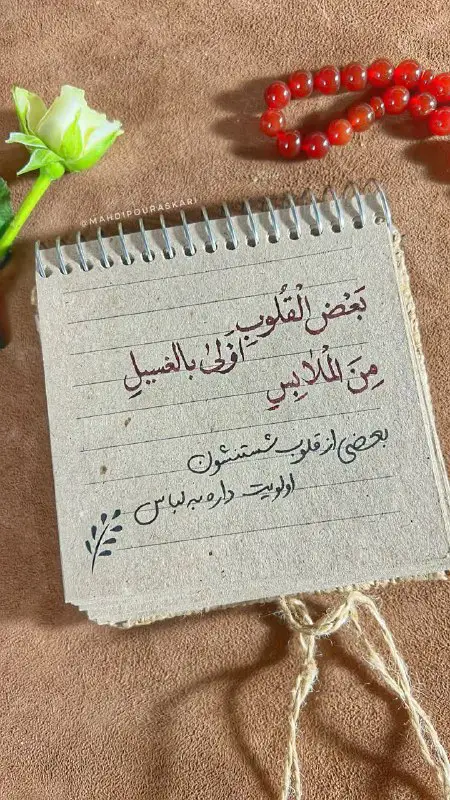 @MAHDIPOURASKARI
بَعْض الْقُلُوبِ
اَوَلىٰ بالغسیلِ
مِنَ الْمَلابِسِ
بعضی از قلوب شستنشون
اولویت داره به لباس